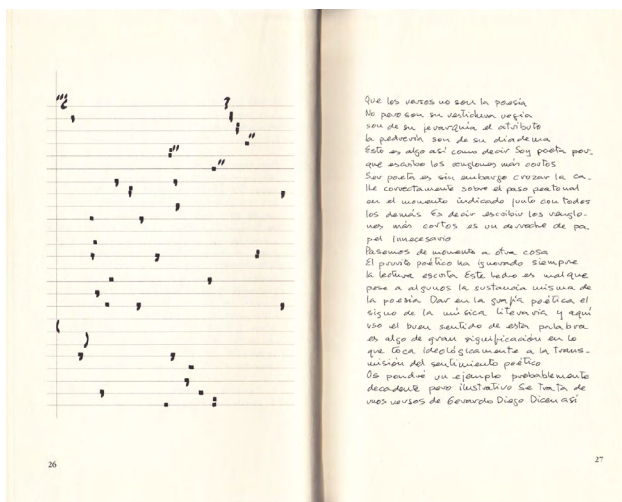 26
Que los versos no son la poesía
No pero son su vestidura regia
son de su jerarquía el atributo
la pedrería son de su diadema
Esto es algo así como decir Soy poeta por-
que escribo los renglones más cortos
Ser poeta es sin embargo cruzar la ca-
lle correctamente sobre el paso peatonal
en el momento indicado junto con todos
los demás Es decir escribir los renglo-
nes más cortos es un derroche de pa
pel innecesario
Pasemos de momento a otra cosa
El prurito poético ha ignorado siempre
la lectura escrita Este hecho es mal que
pese a algunos la sustancia misma de
la poesía Dar en la grafía poética el
signo de la música literaria y aquí
uso el buen sentido de esta palabra
es algo de gran significación en lo
que toca ideológicamente a la trans-
misión del sentimiento poético
Os pondré un ejemplo probablemente
decadente pero ilustrativo Se trata de
unos versos de Gerardo Diego Dicen así
27